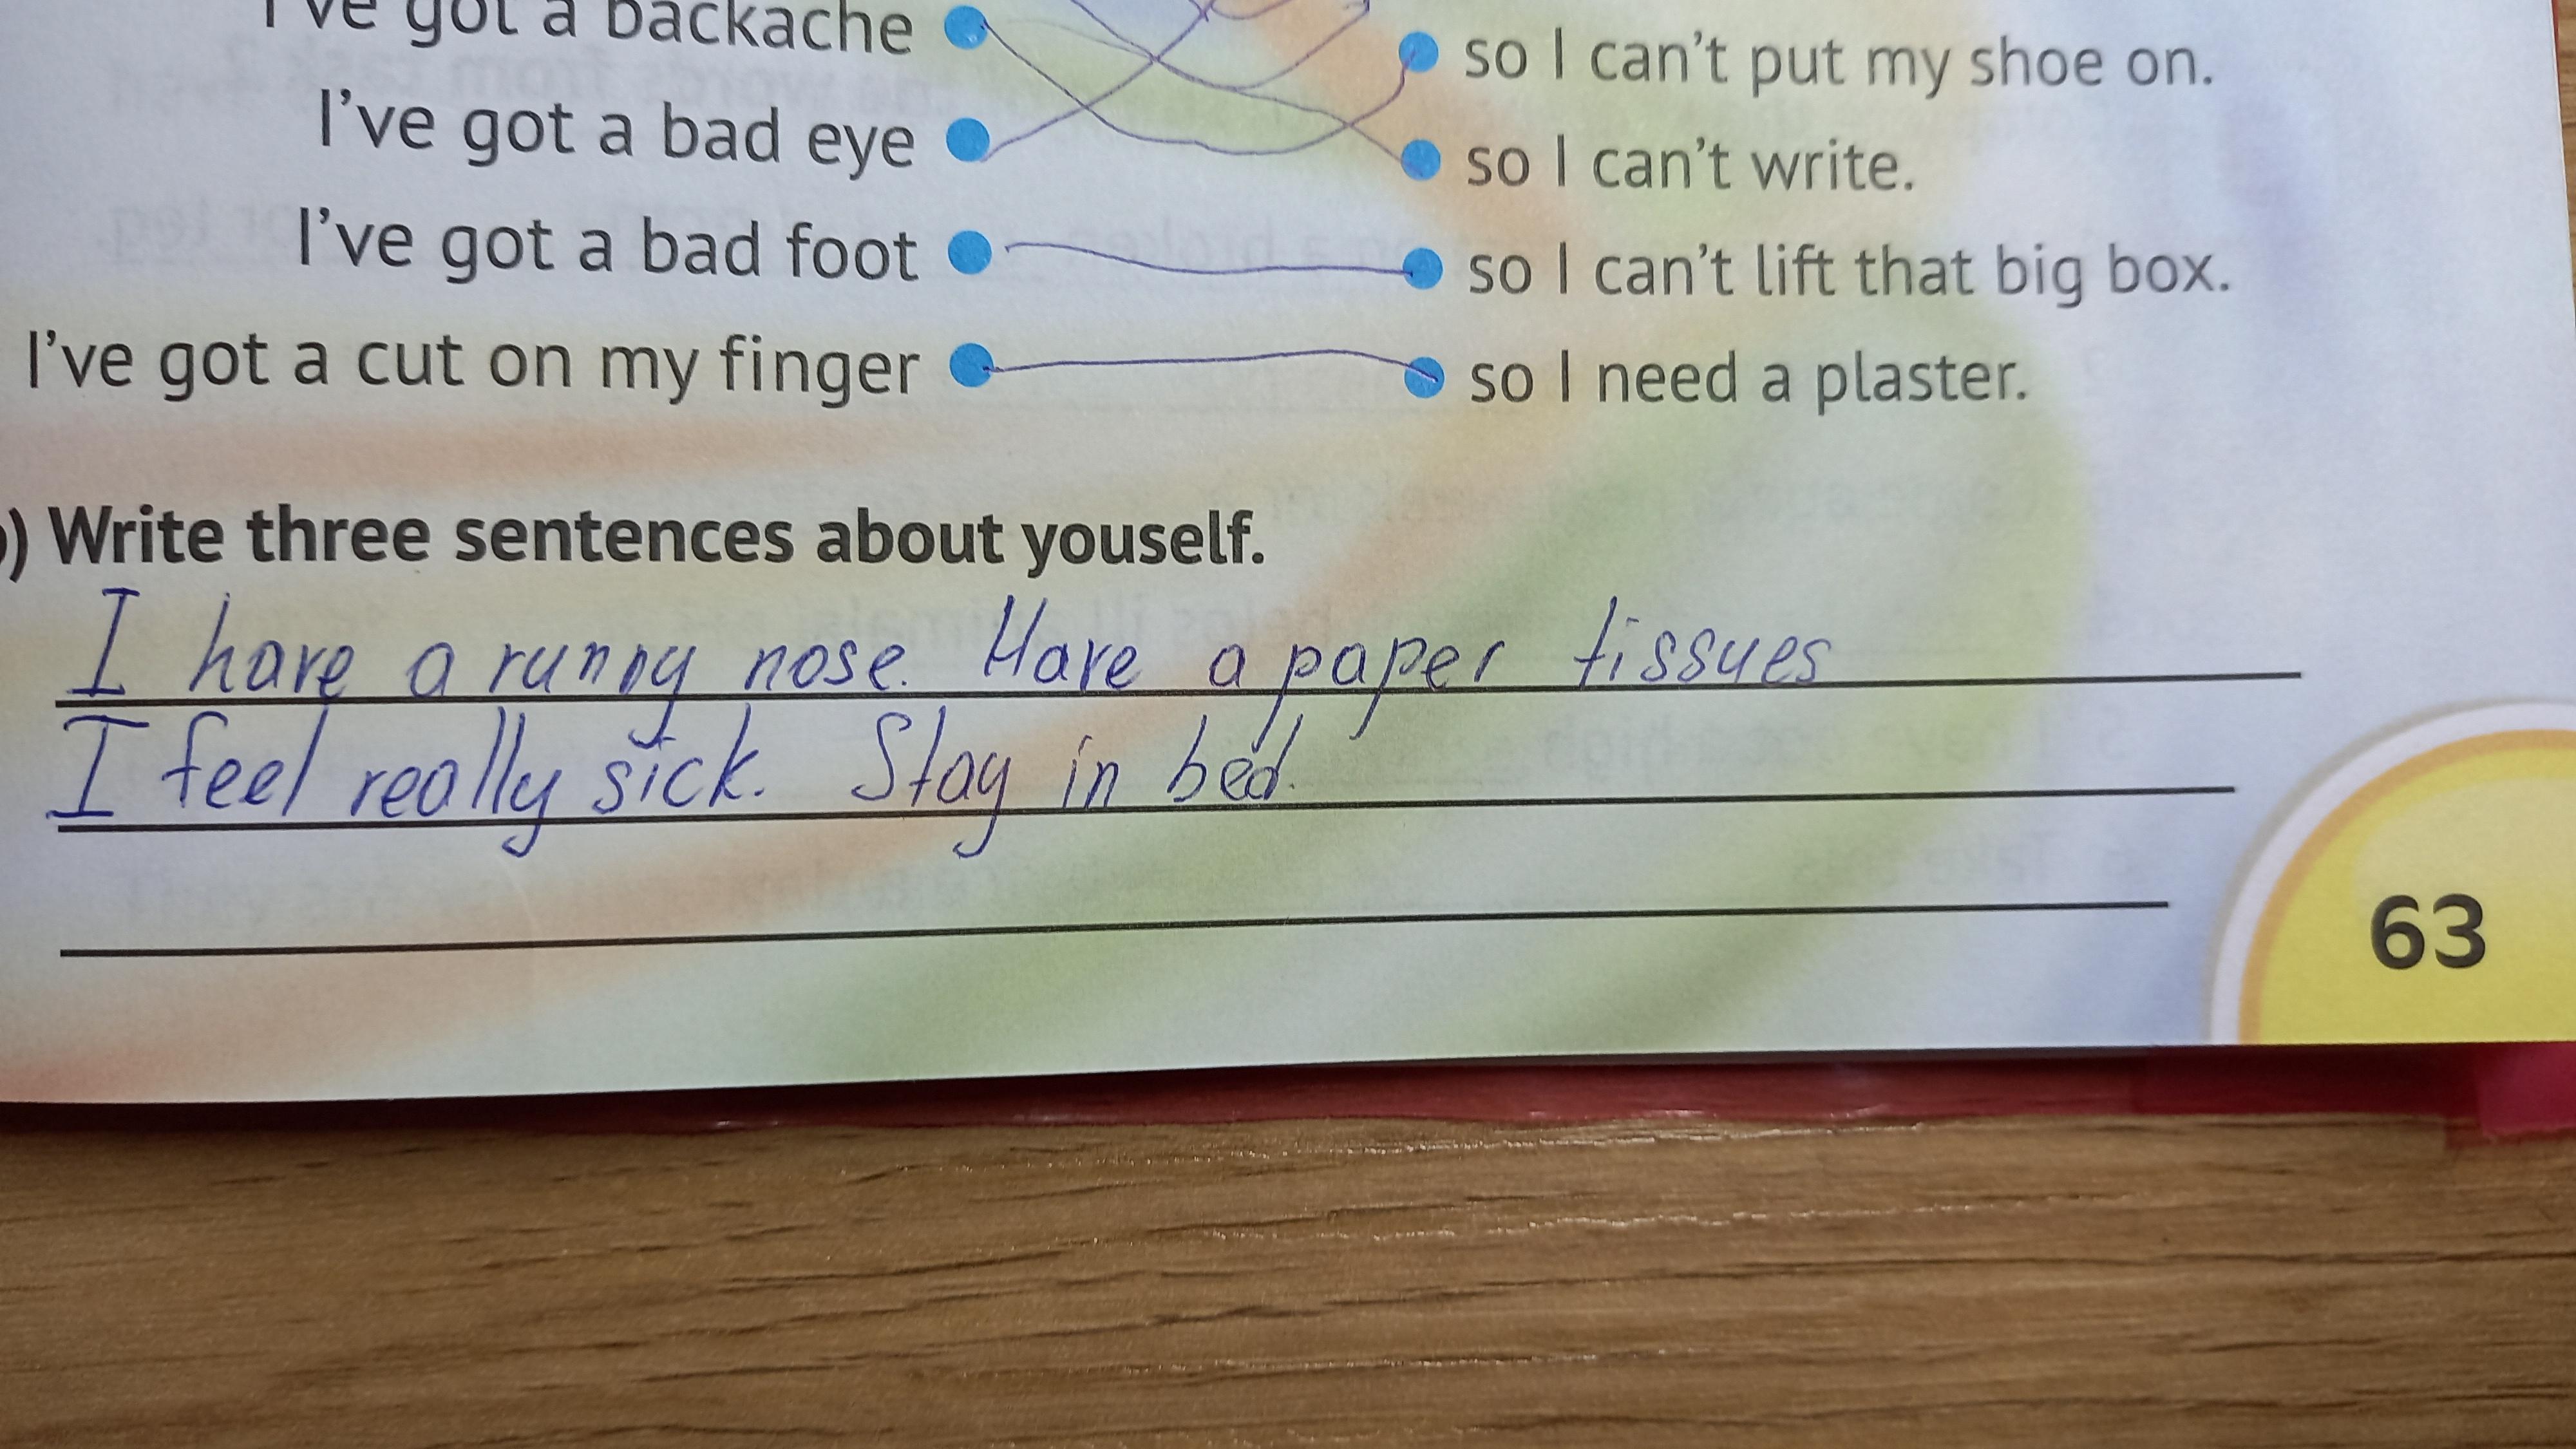 I've got a backache
so I can't put my shoe on.
I've got a bad eye
so I can't write.
I've got a bad foot
so I can't lift that big box.
I've got a cut on my finger
so I need a plaster.
) Write three sentences about youself.
I have a runny nose. Have a paper tissues
I feel really sick. Stay in bed.
63